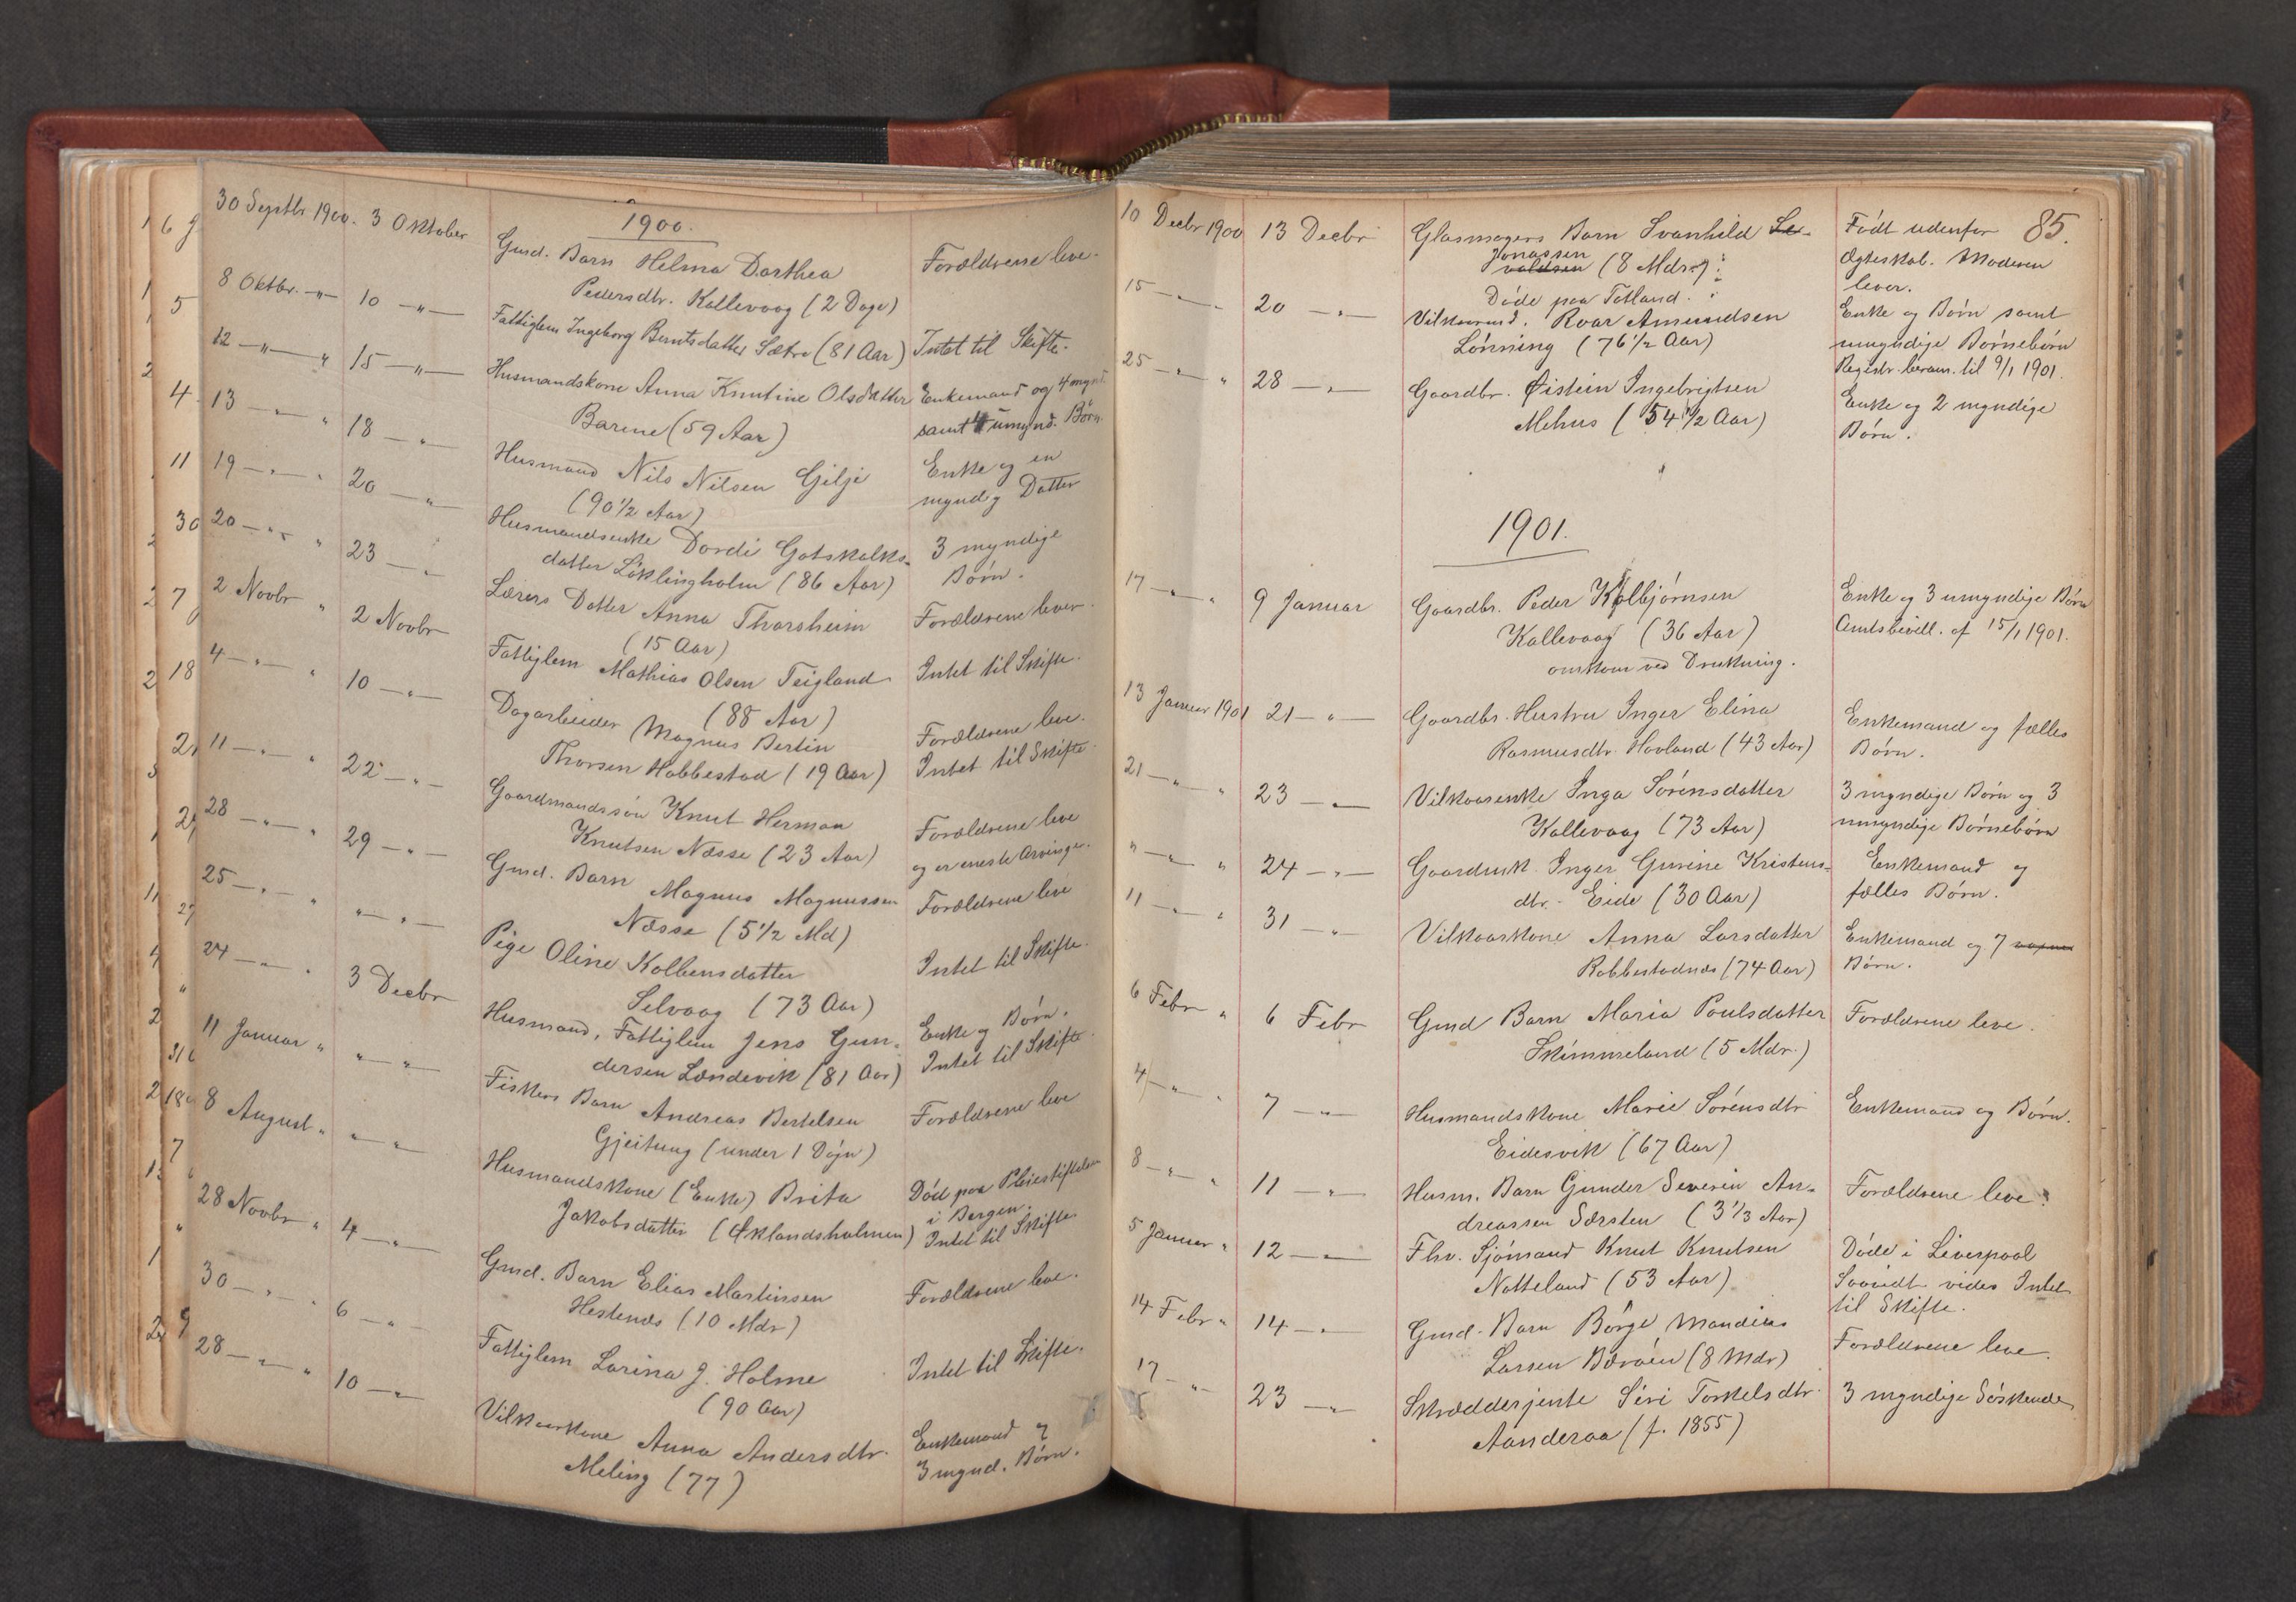 1900.
30 Septbr 1900. 3 Oktober Gmd. Barn Helma Dorthea Forældrene leve.
Pedersdtr. Kallevaag (2 Dage)
8 Oktbr. -"- 10 -"- Fattiglem Ingeborg Berntsdatter Sætre (81 Aar) Intet til Skifte.
12 -"- " 15 -"- Husmandskone Anna Knutine Olsdatter Enkemand og 4 mynd.
Barme (59 Aar) samt 4 umynd. Børn
13 -"- " 18 -"- Husmand Nils Nilsen Gilje Enke og en
(90 1/2 Aar) myndig Datter
19 -"- " 20 -"- Husmandsenke Dordi Gotskalks- 3 myndige
datter Löklingholm (86 Aar) Børn.
20 -"- " 23 -"- Lærers Datter Anna Thorsheim Forældrene lever.
(15 Aar)
2 Novbr " 2 Novbr Fattiglem Mathias Olsen Teigland Intet til Skifte.
(88 Aar)
4 -"- " 10 -"- Dagarbeider Magnus Bertin Forældrene leve.
Thorsen Habbestad (19 Aar) Intet til Skifte.
11 -"- " 22 -"- Gaardmandssön Knut Herman Forældrene leve
Knutsen Næsse (23 Aar) og er eneste Arvinge.
28 -"- " 29 -"- Gmd. Barn Magnus Magnussen Forældrene leve
Næsse (5 1/2 Md)
25 -"- " " -"- Pige Oline Kolbensdatter Intet til Skifte.
Selvaag (73 Aar)
24 -"- " 3 Decbr Husmand, Fattiglem Jens Gun- Enke og Børn.
dersen Lændevik (81 Aar) Intet til Skifte.
11 Januar " " -"- Fiskers Barn Andreas Bertelsen Forældrene leve
Gjeitung (under 1 Døjn)
8 August " " -"- Husmandskone (Enke) Brita Död paa Pleiestiftelsen
i Bergen.
Jakobsdatter (Øklandsholmen) Intet til Skifte
28 Novbr " 4 -"- Gmd. Barn Elias Martinsen Forældrene leve.
Hestenæs (10 Mdr)
30 -"- " 6 -"- Fattiglem Larina J. Holme Intet til Skifte.
(90 Aar)
28 -"- " 10 -"- Vilkaarskone Anna Andersdtr. Enkemand og
Meling (77) 3 mynd. Børn.
85.
10 Decbr 1900 13 Decbr Glasmagers Barn Svanhild Se- Födt udenfor
Jonassen
valdsen (8 Mdr) Ægteskab. Moderen
Döde paa Totland. lever.
15 -"- 20 -"- Vilkaarmd. Roar Amundsen Enke og Børn samt
Lönning (76 1/2 Aar) umyndige Børnebörn
Registr. beram. til 9/1 1901.
25 -"- " 28 -"- Gaardbr. Øistein Ingebrigtsen Enke og 2 myndige
Mehus (54 1/2 Aar) Børn.
1901.
17 -"- " 9 Januar Gaardbr. Peder Kolbjörnsen Enke og 3 umyndige Børn
Kallevaag (36 Aar) Amtsbevill. af 15/1 1901.
omkom ved Drukning.
13 Januar 1901 21 -"- Gaardbr. Hustru Inger Elina Enkemand og fælles
Rasmusdtr. Hovland (43 Aar) Børn.
21 -"- " 23 -"- Vilkaarsenke Inga Sörensdatter 3 myndige Børn og 3
Kallevaag (73 Aar) umyndige Børnebörn
" -"- " 24 -"- Gaardmk. Inger Gurine Kristens- Enkemand og
dtr. Eide (30 Aar) fælles Børn.
11 -"- " 31 -"- Vilkaarskone Anna Larsdatter Enkemand og 7
Robbestadnæs (74 Aar) Børn.
6 Febr " 6 Febr Gmd Barn Maria Poulsdatter Forældrene leve.
Skimmeland (5 Mdr.)
4 -"- " 7 -"- Husmandskone Marie Sörensdtr Enkemand og Børn.
Eidesvik (67 Aar)
8 -"- " 11 -"- Husm. Barn Gunder Severin An- Forældrene leve
dreassen Særsten (3 1/3 Aar)
5 Januar " 12 -"- Fhv. Sjömand Knut Knutsen Döde i Liverpool
Notteland (53 Aar) Saavidt vides Intet
til Skifte.
14 Febr " 14 -"- Gmd. Barn Börge Mandius Forældrene leve.
Larsen Bærøen (8 Mdr)
17 -"- 23 -"- Skrædderjente Siri Torkelsdtr. 3 myndige Söskende
Aanderaa (f. 1855)